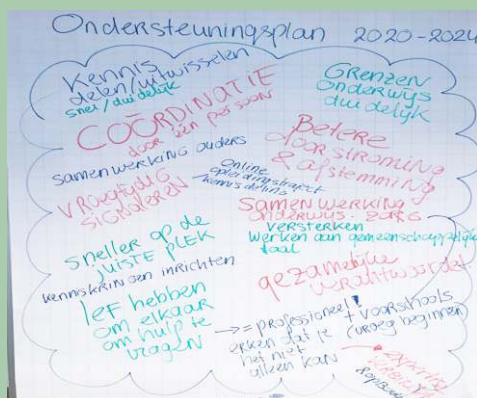 Ondersteuningsplan 2020-2024
Kennis
delen/uitwisselen
snel/duidelijk
GRENZEN
ONDERWIJS
duidelijk
COÖRDINATIE
door één persoon
samenwerking ouders
Betere
doorstroming
& afstemming
VROEGTIJDIG
SIGNALEREN
online
opleidingstraject
kennisdeling
Samenwerking
onderwijs-zorg
versterken
werken aan gemeenschappelijke
taal
sneller op de
juiste plek
kenniskringen inrichten
gezamelijke
verantwoordel.
lef hebben
om elkaar
om hulp te
vragen
→ = professioneel!
erken dat je
het niet
alleen kan
+ voorschools
(vroeg beginnen)